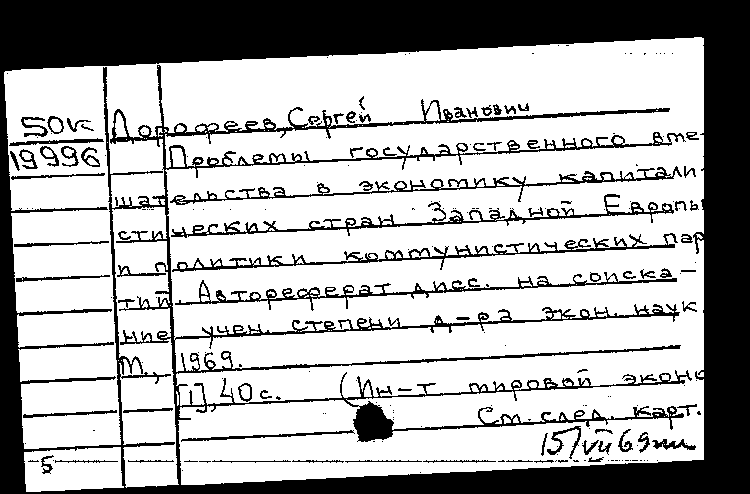 50к Дорофеев, Сергей Иванович
19996 Проблемы государственного вме-
шательства в экономику капитали-
стических стран Западной Европы
и политики коммунистических пар
тий. Автореферат дисс. на соиска-
ние учен. степени д-ра экон. наук.
М., 1969.
[1], 40 с. (Ин-т мировой эконо
См. след. карт.
15/VII 69
5